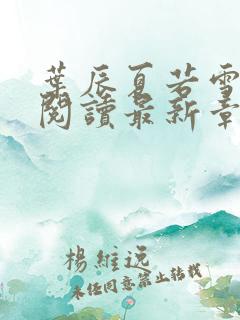 葉辰夏若雪
閱讀最新章
楊維远
未經同意禁止轉載